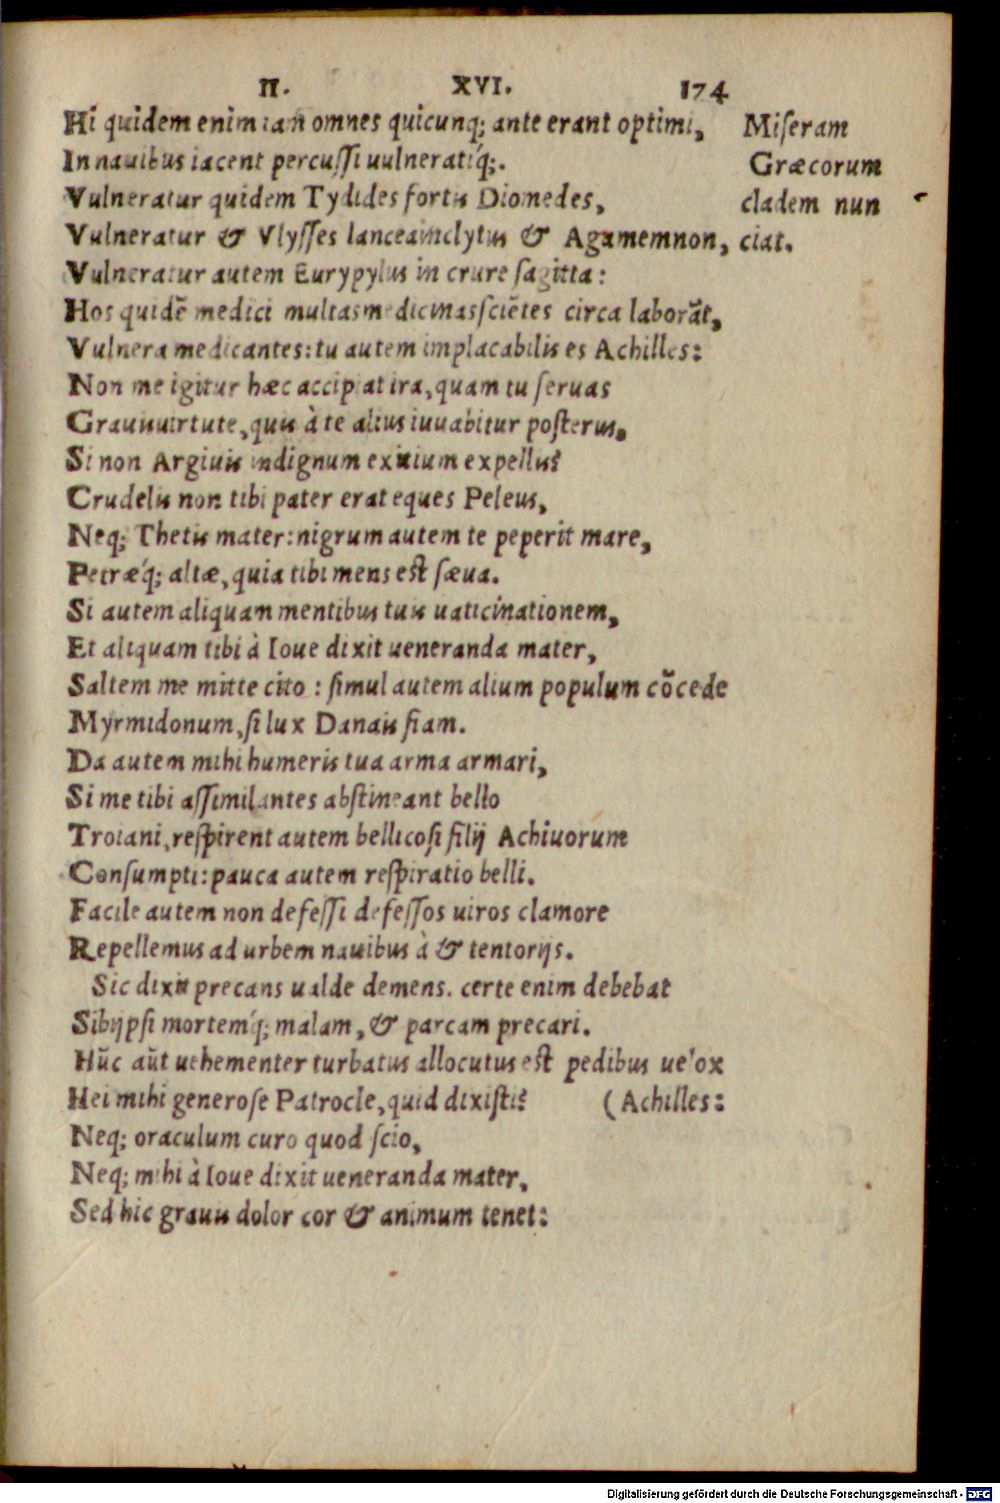 Π. XVI. 174
Hi quidem enim iam omnes quicunq; ante erant optimi, Miseram
In nauibus iacent percussi uulneratíq;. Græcorum
Vulneratur quidem Tydides fortis Diomedes, cladem nun
Vulneratur & Vlysses lancea inclytus & Agamemnon, ciat.
Vulneratur autem Eurypylus in crure sagitta:
Hos quidē medici multas medicinas sciētes circa laborāt,
Vulnera medicantes: tu autem implacabilis es Achilles:
Non me igitur hæc accipiat ira, quam tu seruas
Grauuirtute, quis à te alius iuuabitur posterus,
Si non Argiuis indignum exitium expellis?
Crudelis non tibi pater erat eques Peleus,
Neq; Thetis mater: nigrum autem te peperit mare,
Petræq́; altæ, quia tibi mens est sæua.
Si autem aliquam mentibus tuis uaticinationem,
Et aliquam tibi à Ioue dixit ueneranda mater,
Saltem me mitte cito : simul autem alium populum cōcede
Myrmidonum, si lux Danais fiam.
Da autem mihi humeris tua arma armari,
Si me tibi assimilantes abstineant bello
Troiani, respirent autem bellicosi filij Achiuorum
Consumpti: pauca autem respiratio belli.
Facile autem non defessi defessos uiros clamore
Repellemus ad urbem nauibus à & tentorijs.
Sic dixit precans ualde demens. certe enim debebat
Sibijpsi mortemq́; malam, & parcam precari.
Hūc aūt uehementer turbatus allocutus est pedibus uelox
Hei mihi generose Patrocle, quid dixisti? (Achilles:
Neq; oraculum curo quod scio,
Neq; mihi à Ioue dixit ueneranda mater,
Sed hic grauis dolor cor & animum tenet:
Digitalisierung gefördert durch die Deutsche Forschungsgemeinschaft - DFG